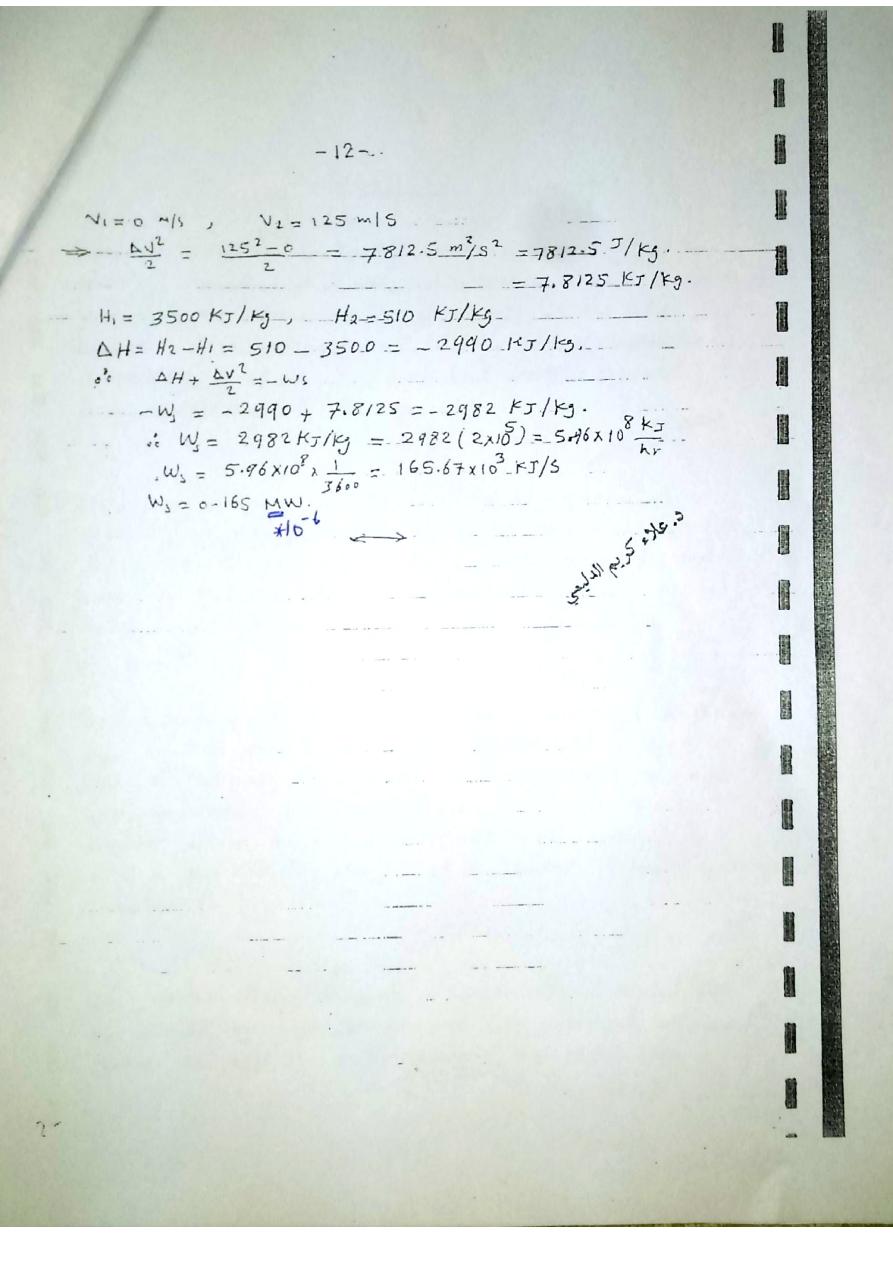 -12-
V1 = 0 m/s , V2 = 125 m/s
⇒ ΔV²/2 = 125² - 0 / 2 = 7812.5 m²/s² = 7812.5 J/kg.
= 7.8125 KJ/kg.
H1 = 3500 KJ/kg , H2 = 510 KJ/kg
ΔH = H2 - H1 = 510 - 3500 = -2990 KJ/kg.
∵ ΔH + ΔV²/2 = -Ws
-Ws = -2990 + 7.8125 = -2982 KJ/kg.
∴ Ws = 2982 KJ/kg = 2982 (2×10⁵) = 5.96×10⁸ KJ/hr
Ws = 5.96×10⁸ × 1/3600 = 165.67×10³ KJ/S
Ws = 0.165 MW.
*10⁻⁶
د. علاء كريم الدليمي